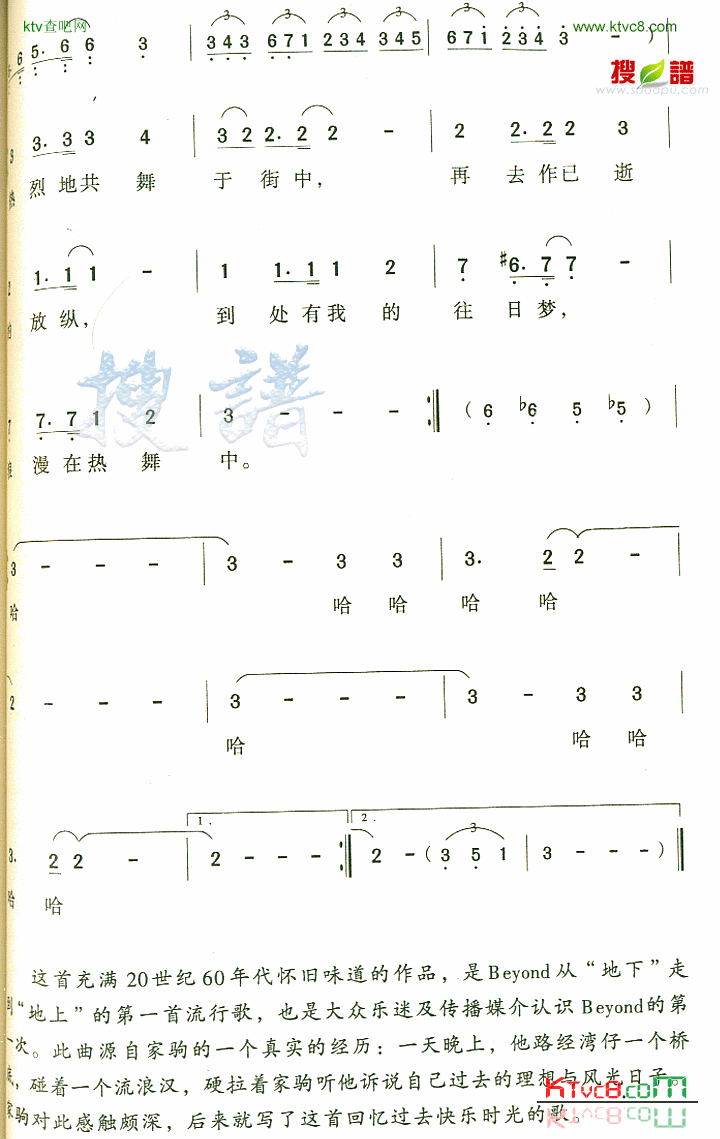 ktv查吧网
www.ktvc8.com
搜谱
www.sooopu.com
6 5. 6 6 3 | 3 4 3 6 7 1 2 3 4 3 4 5 | 6 7 1 2 3 4 3 - ) |
3. 3 3 4 | 3 2 2. 2 2 - | 2 2. 2 2 3
烈 地 共 舞 于 街 中, 再 去 作 已 逝
1. 1 1 - | 1 1. 1 1 2 | 7 #6. 7 7 - |
放 纵, 到 处 有 我 的 往 日 梦,
7. 7 1 2 | 3 - - - :| ( 6 ♭6 5 ♭5 ) |
漫 在 热 舞 中。
搜譜
3 - - - | 3 - 3 3 | 3. 2 2 - |
哈 哈 哈 哈 哈
2 - - - | 3 - - - | 3 - 3 3 |
哈 哈 哈
1. 2.
3. 2 2 - | 2 - - - :| 2 - ( 3 5 1 | 3 - - - ) ||
哈 哈
这首充满20世纪60年代怀旧味道的作品，是Beyond从“地下”走
到“地上”的第一首流行歌，也是大众乐迷及传播媒介认识Beyond的第
一次。此曲源自家驹的一个真实的经历：一天晚上，他路经湾仔一个桥
底，碰着一个流浪汉，硬拉着家驹听他诉说自己过去的理想与风光日子。
家驹对此感触颇深，后来就写了这首回忆过去快乐时光的歌。
KTvc8.com